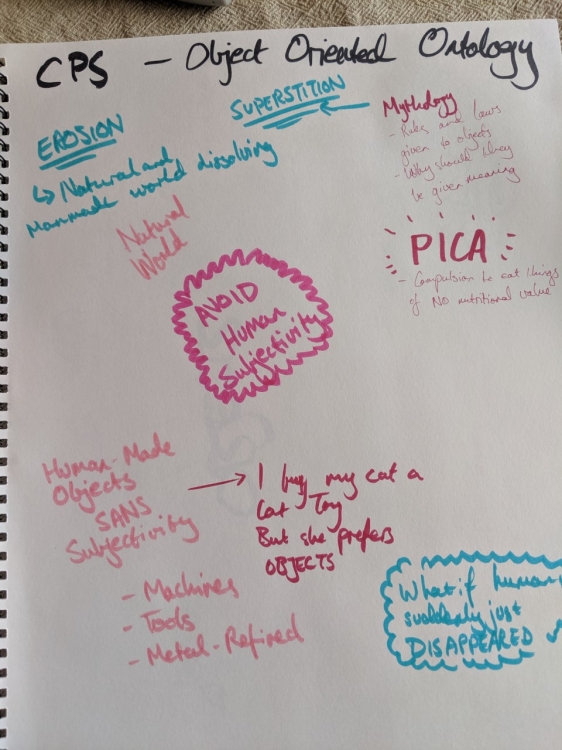 CPS - Object Oriented Ontology
SUPERSTITION
EROSION
↳ Natural and
Manmade world dissolving
Mythology
- Rules and laws
given to objects
- Why should they
be given meaning
Natural
World
PICA
- Compulsion to eat things
of NO nutritional value
AVOID
Human
Subjectivity
Human-Made
Objects
SANS
Subjectivity
- Machines
- Tools
- Metal-Refined
→ I buy my cat a
Cat Toy
But she prefers
OBJECTS
What if human
suddenly just
DISAPPEARED